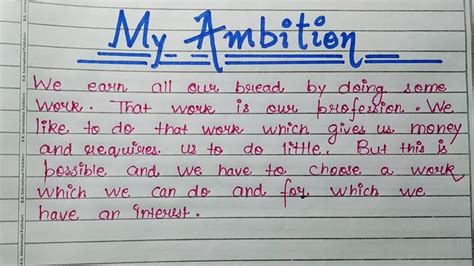 My Ambition
We earn all our bread by doing some
work. That work is our profession. We
like to do that work which gives us money
and requires us to do little. But this is
possible and we have to choose a work
which we can do and for which we
have an interest.